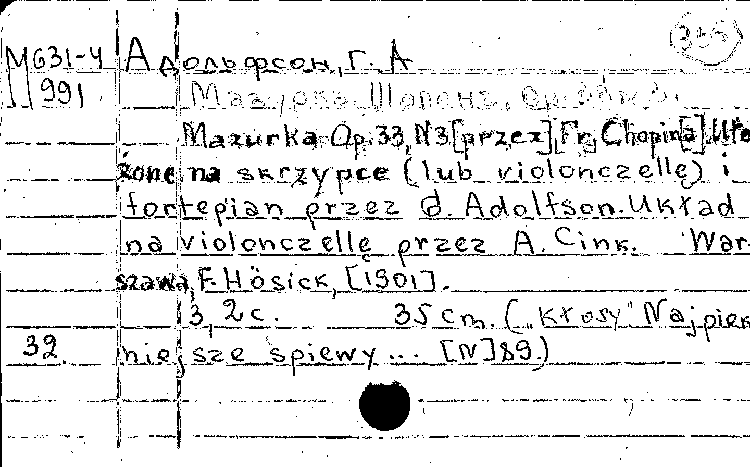 М631-4 Адольфсон, Г. А
991 Мазурка Шопена, op. 33 N 3.
Mazurka Op. 33, N3 [przez], Fr. Chopin[a]. Uło
żone na skrzypce (lub violonczellę) i
fortepian przez G. Adolfson. Układ
na violonczellę przez A. Cink. War-
szawa, F. Hösick, [1901].
3, 2 c. 35 cm. („Kłosy" Najpięk
32. niejsze śpiewy... [N] 89.)